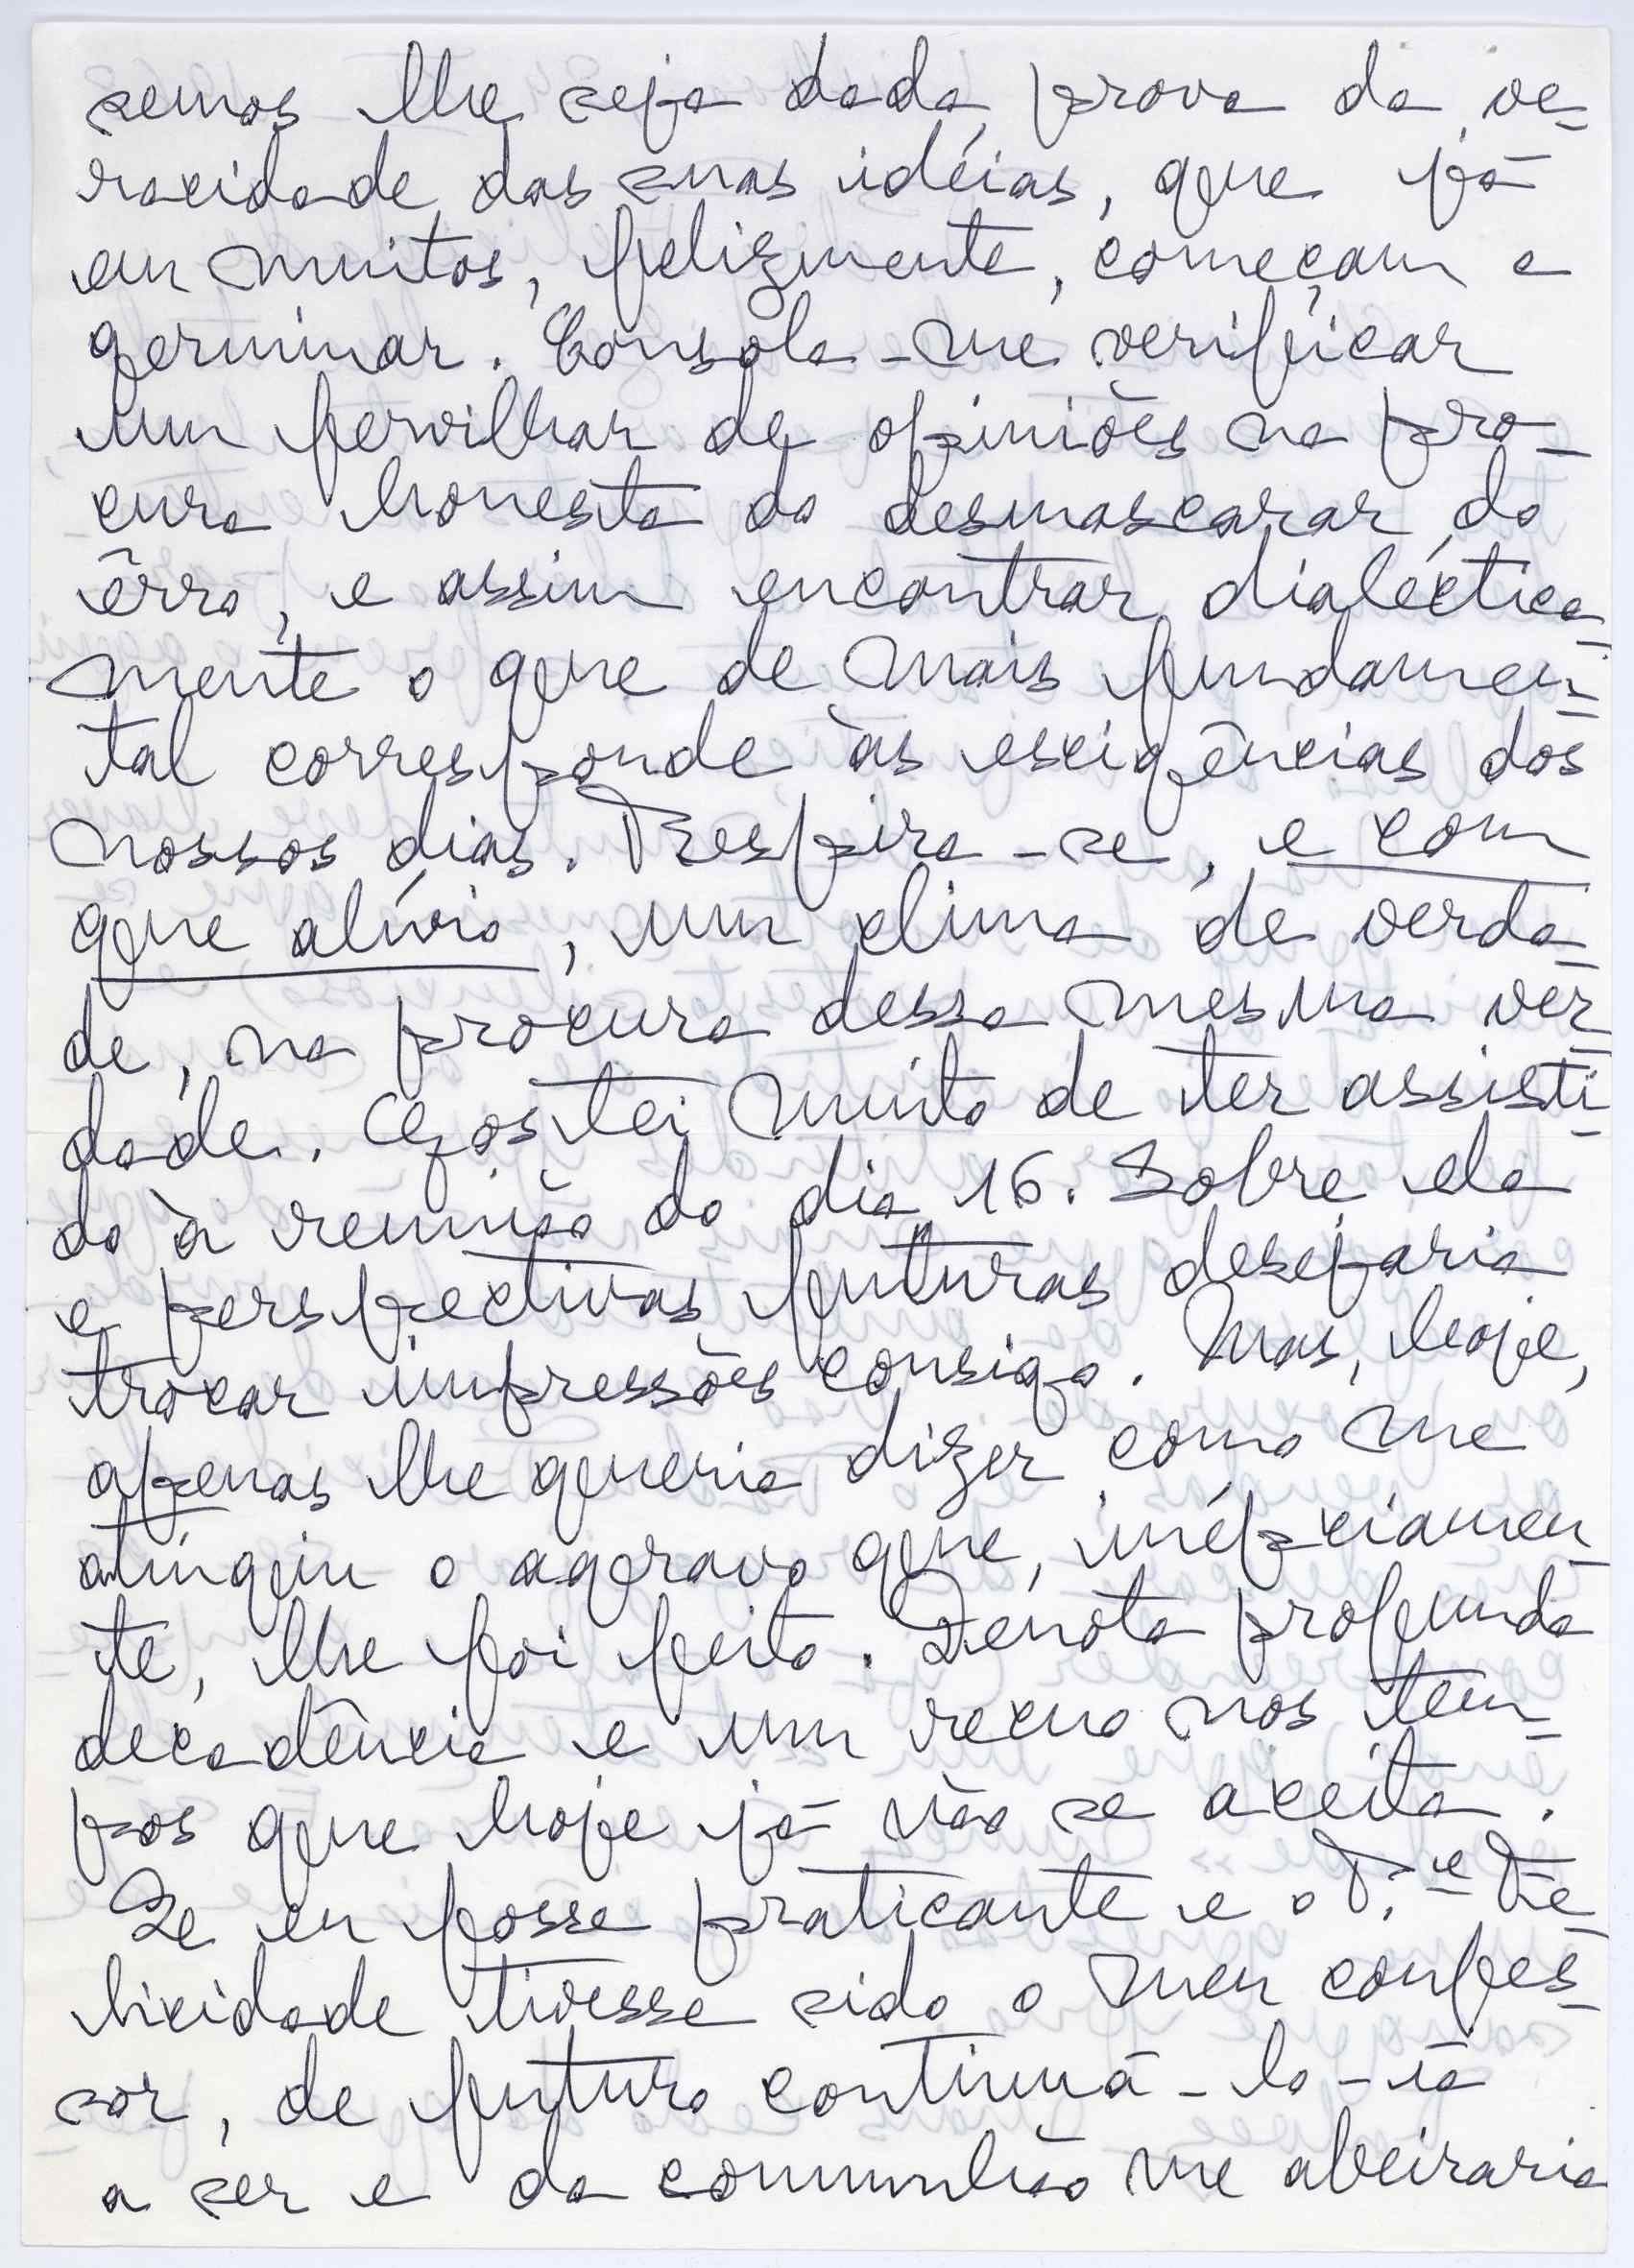 semos lhe seja dada prova da ve-
racidade das suas idéias, que já
em muitos, felizmente, começam a
germinar. Consola-me verificar
um fervilhar de opiniões na pro-
cura honesta do desmascarar do
êrro, e assim encontrar dialéctica-
mente o que de mais fundamen-
tal corresponde às exigências dos
nossos dias. Respira-se, e com
que alívio, um clima de verda-
de, na procura dessa mesma ver-
dade. Gostei muito de ter assisti-
do à reunião do dia 16. Sobre ela
e perspectivas futuras desejaria
trocar impressões consigo. Mas, hoje,
apenas lhe queria dizer como me
atingiu o agravo que, inépciamen-
te, lhe foi feito. Denota profunda
decadência e um recuo nos tem-
pos que hoje já não se aceita.
Se eu fosse praticante e o P.e Fe-
licidade tivesse sido o meu confes-
sor, de futuro continuá-lo-ia
a ser e da comunhão me abeiraria